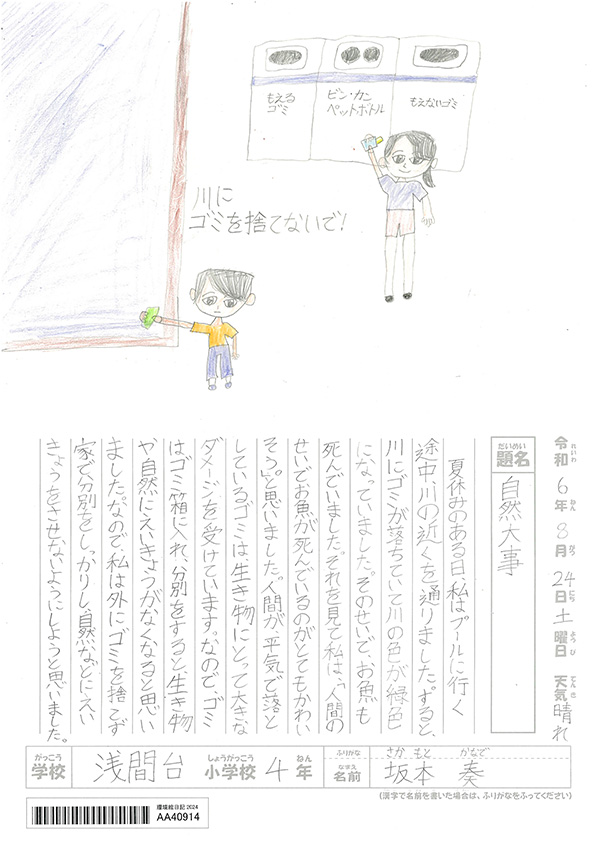 もえる
ゴミ
ビン・カン
ペットボトル
もえないゴミ
川に
ゴミを捨てないで!
令和6年8月24日土曜日 天気晴れ
れいわ ねん がつ にち ようび てんき
だいめい
題名
自然大事
夏休みのある日、私はプールに行く
途中、川の近くを通りました。すると、
川にゴミが落ちていて川の色が緑色
になっていました。そのせいで、お魚も
死んでいました。それを見て私は、「人間の
せいでお魚が死んでいるのがとてもかわい
そう。」と思いました。人間が、平気で落と
しているゴミは生き物にとって大きな
ダメージを受けています。なので、ゴミ
はゴミ箱に入れ、分別をすると生き物
や自然にえいきょうがなくなると思い
ました。なので、私は外にゴミを捨てず
家で分別をしっかりし、自然などにえい
きょうをさせないようにしようと思いました。
がっこう
学校
浅間台
しょうがっこう
小学校
4
ねん
年
ふりがな
さかもと かなで
なまえ
名前
坂本 奏
(漢字で名前を書いた場合は、ふりがなをふってください)
環境絵日記2024
AA40914